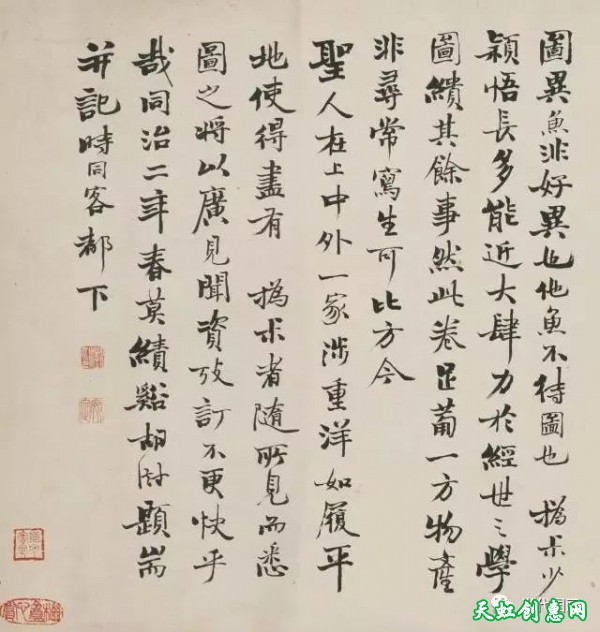 圖異魚非好異也他魚不待圖也 撝尗少
穎悟長多能近大肆力於經世之學
圖繢其餘事然此卷足葡一方物產
非尋常寫生可比方今
聖人在上中外一家涉重洋如履平
地使得盡有 撝尗者隨所見而悉
圖之將以廣見聞資攷訂不更快乎
哉同治二年春莫績谿胡澍題耑
并記時同客都下
天虹创惠网